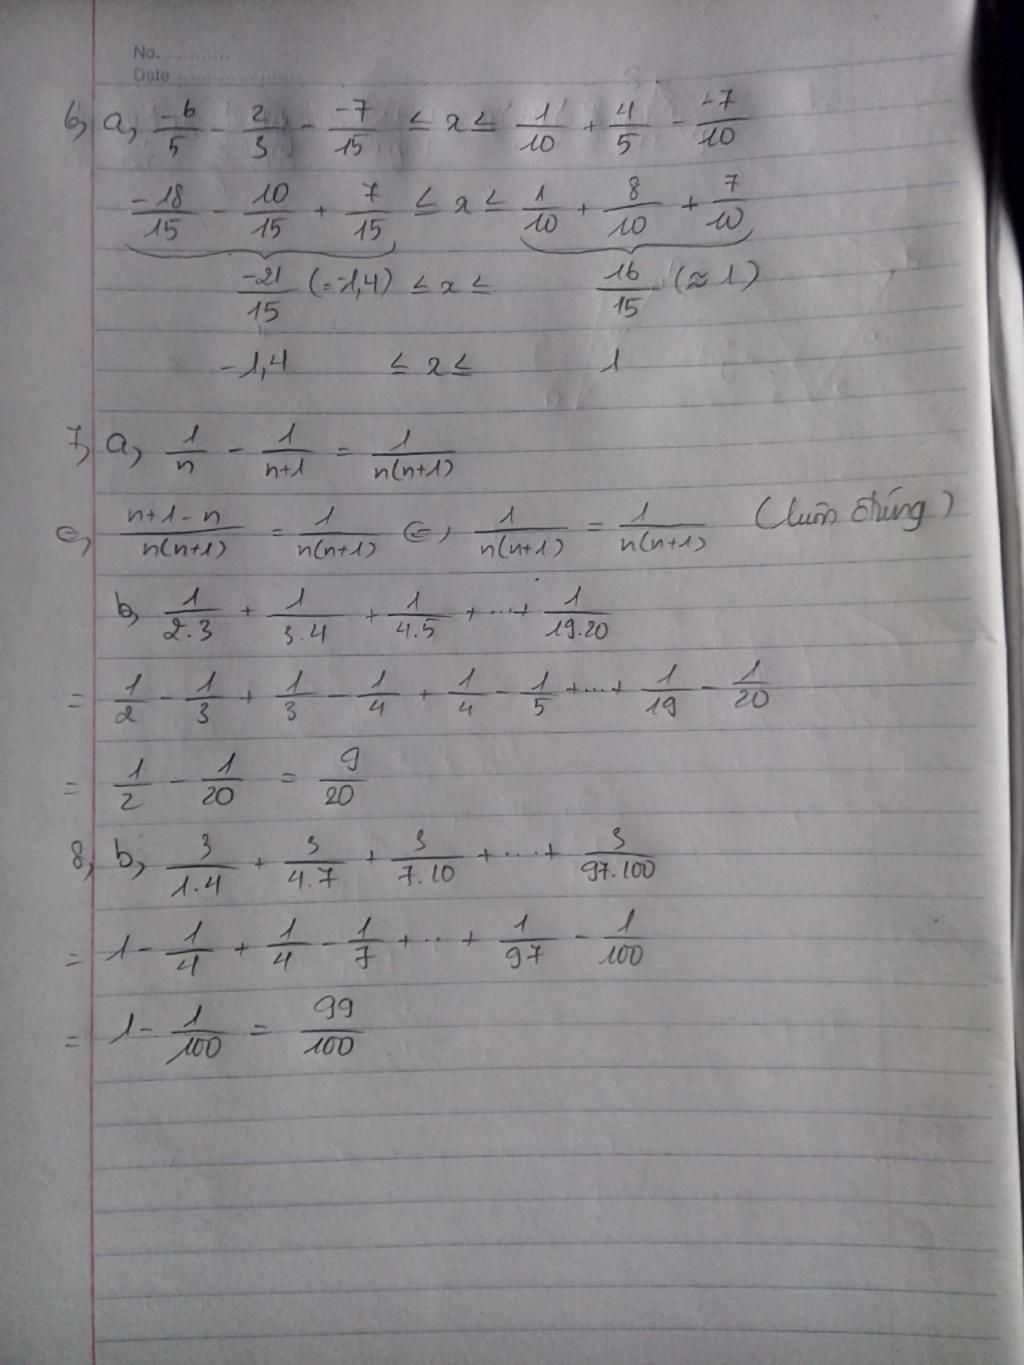 No. ............
Date .....................
6, a, \frac{-6}{5} - \frac{2}{3} - \frac{-7}{15} ≤ x ≤ \frac{1}{10} + \frac{4}{5} - \frac{-7}{10}
\frac{-18}{15} - \frac{10}{15} + \frac{7}{15} ≤ x ≤ \frac{1}{10} + \frac{8}{10} + \frac{7}{10}
\frac{-21}{15} (=-1,4) ≤ x ≤ \frac{16}{15} (≈ 1)
-1,4 ≤ x ≤ 1
7, a, \frac{1}{n} - \frac{1}{n+1} = \frac{1}{n(n+1)}
⇔ \frac{n+1-n}{n(n+1)} = \frac{1}{n(n+1)} ⇔ \frac{1}{n(n+1)} = \frac{1}{n(n+1)} (luôn đúng)
b, \frac{1}{2.3} + \frac{1}{3.4} + \frac{1}{4.5} + ... + \frac{1}{19.20}
= \frac{1}{2} - \frac{1}{3} + \frac{1}{3} - \frac{1}{4} + \frac{1}{4} - \frac{1}{5} + ... + \frac{1}{19} - \frac{1}{20}
= \frac{1}{2} - \frac{1}{20} = \frac{9}{20}
8, b, \frac{3}{1.4} + \frac{3}{4.7} + \frac{3}{7.10} + ... + \frac{3}{97.100}
= 1 - \frac{1}{4} + \frac{1}{4} - \frac{1}{7} + ... + \frac{1}{97} - \frac{1}{100}
= 1 - \frac{1}{100} = \frac{99}{100}